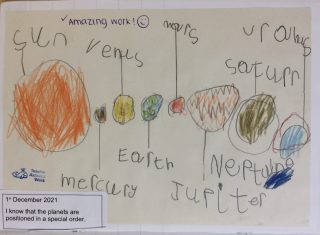 ✓Amazing work! ☺
sun
venus
mars
uranus
saturn
Earth
mercury
Jupiter
Neptune
1st December 2021
I know that the planets are
positioned in a special order.